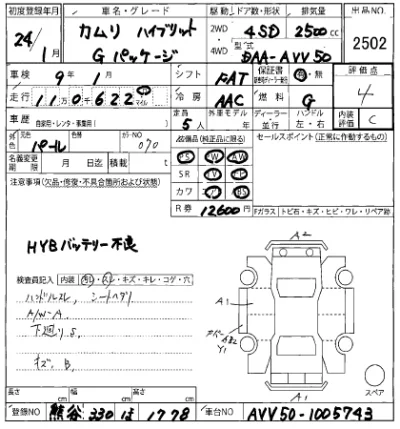 初度登録年月 車名・グレード 駆動 ドア数・形状 排気量 出品NO
24/1月 カムリ ハイブリット 2WD 4SD 2500cc 2502
Gパッケージ 4WD 型式 DAA-AVV50
車検 9年 1月 シフト FAT 保証書 有・無 評価点
走行 110622 マイル 冷房 AAC 燃料 G 4
車歴 自家用・レンタ・事業用( ) 定員 5人 外車モデル 年 ディーラー 並行 ハンドル 左・右 内装評価 C
外色 パール 色替 カラーNO 070 装備品(純正品に限る) セールスポイント(正常に作動するもの)
名義変更期限 月 日迄 積載 t PS PW AW
注意事項(欠品・修復・不具合箇所および状態) SR TV
カワ BS
R券 12,600円 Fガラス トビ石・キズ・ヒビ・ワレ・リペア跡
HYBバッテリー不良
検査員記入 内装 ・スレ・キズ・キレ・コゲ・穴
ハンドルスレ、シートヘタリ
A/W-A
下廻りS
キズ、B
A2
A1
Y1
A1
スペア
長さ cm 幅 cm 高さ cm
登録NO 熊谷 330 ほ 1778 車台NO AVV50-1005743